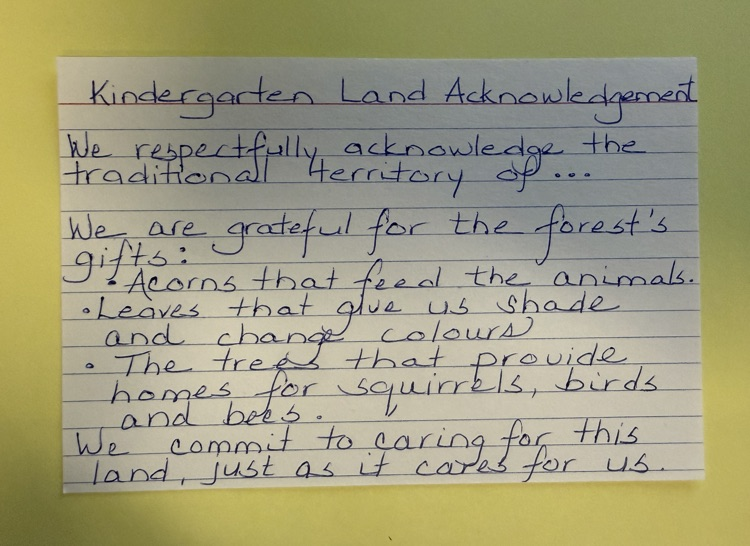 Kindergarten Land Acknowledgement
We respectfully acknowledge the
traditional territory of ...
We are grateful for the forest's
gifts:
• Acorns that feed the animals.
• Leaves that give us shade
and change colours
• The trees that provide
homes for squirrels, birds
and bees.
We commit to caring for this
land, just as it cares for us.